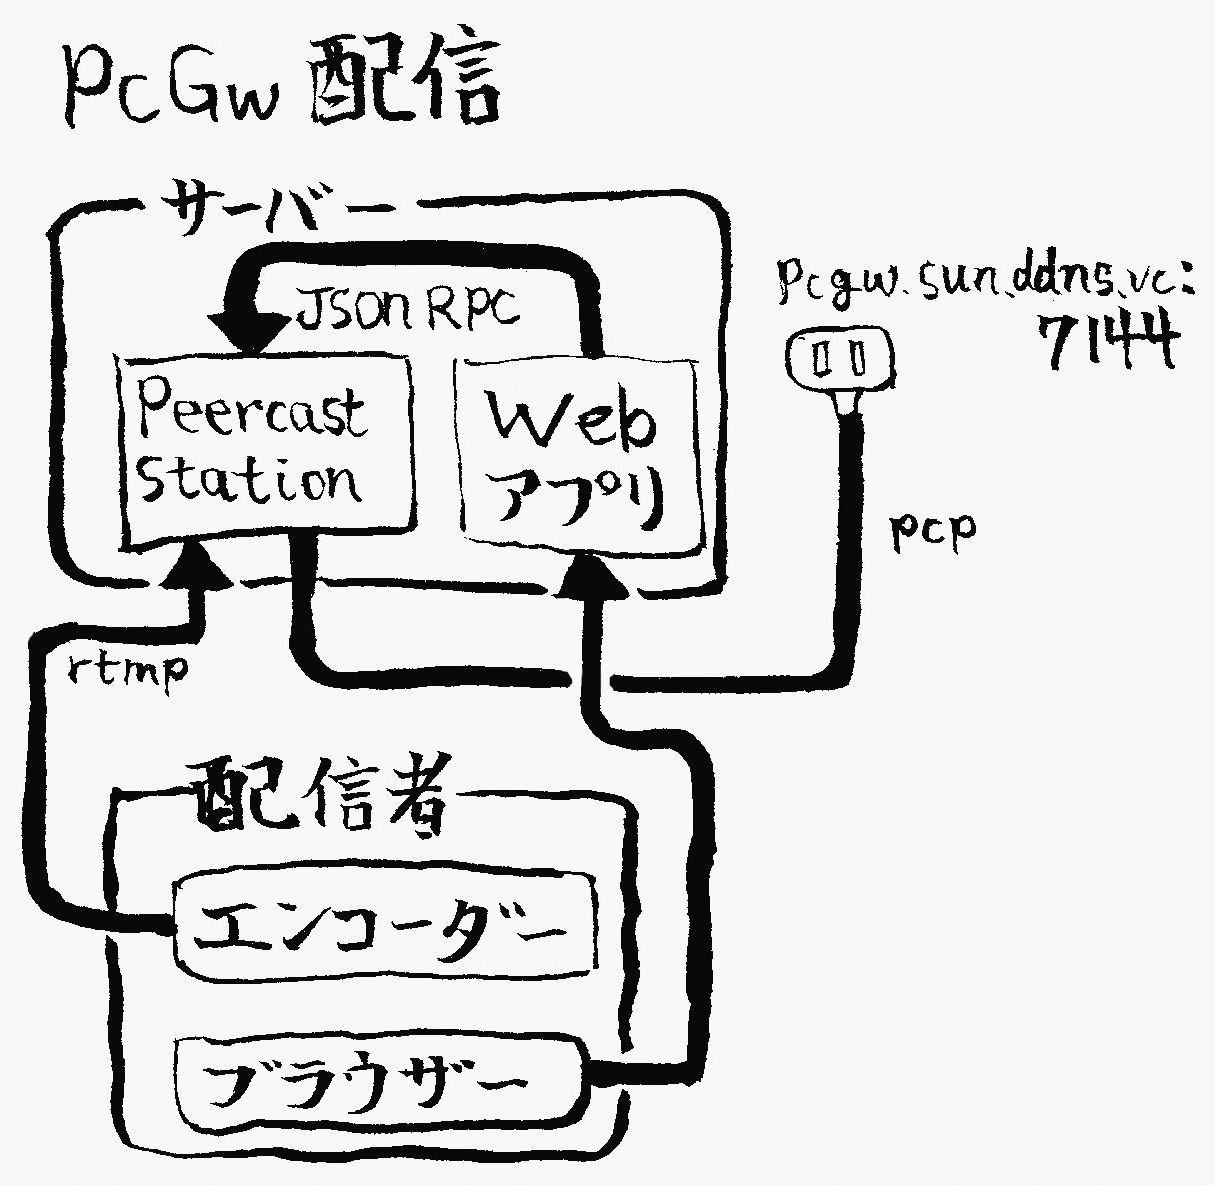 PcGw 配信
サーバー
Json RPC
Peercast
Station
Web
アプリ
Pcgw.sun.ddns.vc:
7144
pcp
rtmp
配信者
エンコーダー
ブラウザー